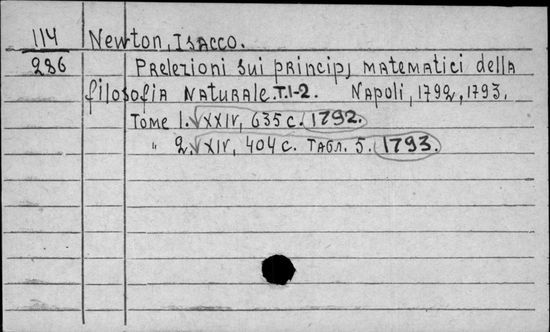 114 Newton, Isacco.
286 Prelezioni sui principj matematici della
filosofia naturale. T.1-2. Napoli, 1792, 1793.
Tome 1. √XXIV, 635 c. 1792.
" 2. √XIV, 404 c. Табл. 5. 1793.